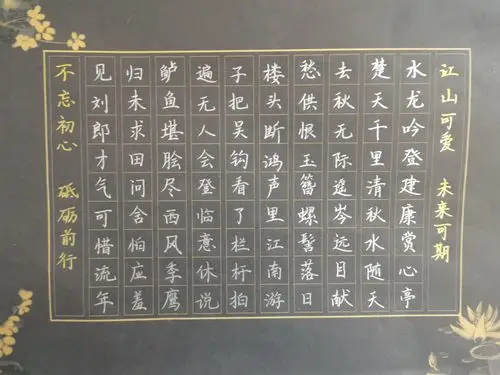 江山可爱 未来可期
水龙吟登建康赏心亭
楚天千里清秋水随天
去秋无际遥岑远目献
愁供恨玉簪螺髻落日
楼头断鸿声里江南游
子把吴钩看了栏杆拍
遍无人会登临意休说
鲈鱼堪脍尽西风季鹰
归未求田问舍怕应羞
见刘郎才气可惜流年
不忘初心 砥砺前行